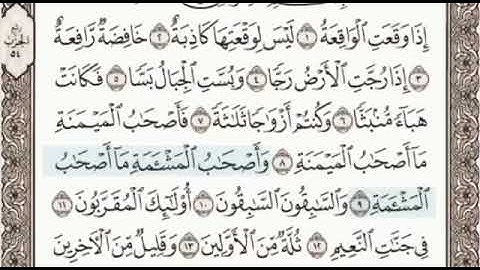 إِذَا وَقَعَتِ ٱلْوَاقِعَةُ ١ لَيْسَ لِوَقْعَتِهَا كَاذِبَةٌ ٢ خَافِضَةٌ رَّافِعَةٌ
٣ إِذَا رُجَّتِ ٱلْأَرْضُ رَجًّا ٤ وَبُسَّتِ ٱلْجِبَالُ بَسًّا ٥ فَكَانَتْ
هَبَآءً مُّنۢبَثًّا ٦ وَكُنتُمْ أَزْوَٰجًا ثَلَٰثَةً ٧ فَأَصْحَٰبُ ٱلْمَيْمَنَةِ
مَآ أَصْحَٰبُ ٱلْمَيْمَنَةِ ٨ وَأَصْحَٰبُ ٱلْمَشْـَٔمَةِ مَآ أَصْحَٰبُ
ٱلْمَشْـَٔمَةِ ٩ وَٱلسَّٰبِقُونَ ٱلسَّٰبِقُونَ ١٠ أُو۟لَٰٓئِكَ ٱلْمُقَرَّبُونَ ١١
فِى جَنَّٰتِ ٱلنَّعِيمِ ١٢ ثُلَّةٌ مِّنَ ٱلْأَوَّلِينَ ١٣ وَقَلِيلٌ مِّنَ ٱلْـَٔاخِرِينَ
الحزب
٥٤